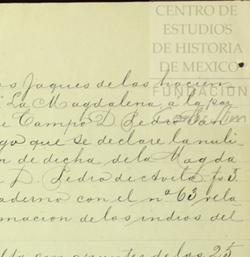 CENTRO DE
ESTUDIOS
DE HISTORIA
DE MEXICO
FUNDACION
os Jaques de las hacien
La Magdalena a la por
e Campo D. Pedro
go que se declare la nuli
n de decha, de la Magda
D. Pedro de Avila fs 3
aderno con el nº 63 rela
macion de los indios del
de los 25